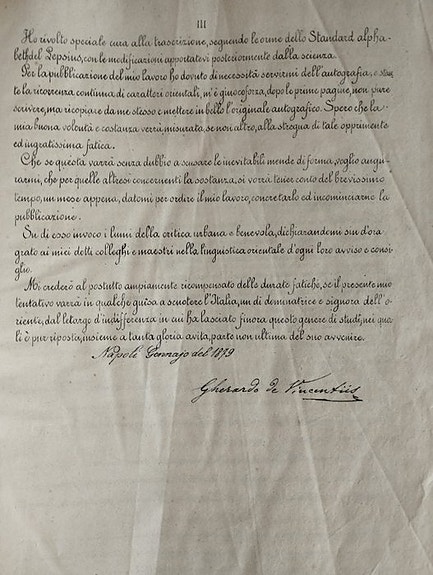 III
Ho rivolto speciale cura alla trascrizione, seguendo le orme dello Standard alpha-
beth del Lepsius, con le modificazioni apportatevi posteriormente dalla scienza.
Per la pubblicazione del mio lavoro ho dovuto di necessità servirmi dell'autografia, e stan-
te la ricorrenza continua di caratteri orientali, m'è giuocoforza, dopo le prime pagine, non pure
scrivere, ma ricopiare da me stesso e mettere in bello l'originale autografico. Spero che la
mia buona volontà e costanza verrà misurata, se non altro, alla stregua di tale opprimente
ed ingratissima fatica.
Che se questa varrà senza dubbio a scusare le inevitabili mende di forma, voglio augu-
rarmi, che per quelle altresì concernenti la sostanza, si vorrà tener conto del brevissimo
tempo, un mese appena, datomi per ordire il mio lavoro, concretarlo ed incominciarne la
pubblicazione.
Su di esso invoco i lumi della critica urbana e benevola, dichiarandomi sin d'ora
grato ai miei dotti colleghi e maestri nella linguistica orientale d'ogni loro avviso e consi-
glio.
Mi crederò al postutto ampiamente ricompensato delle durate fatiche, se il presente mio
tentativo varrà in qualche guisa a scuotere l'Italia, un dì dominatrice e signora dell'o-
riente, dal letargo d'indifferenza in cui ha lasciato finora questo genere di studi, nei qua-
li è pur riposta, insieme a tanta gloria avita, parte non ultima del suo avvenire.
Napoli Gennajo del 1879
Gherardo de Vincentiis